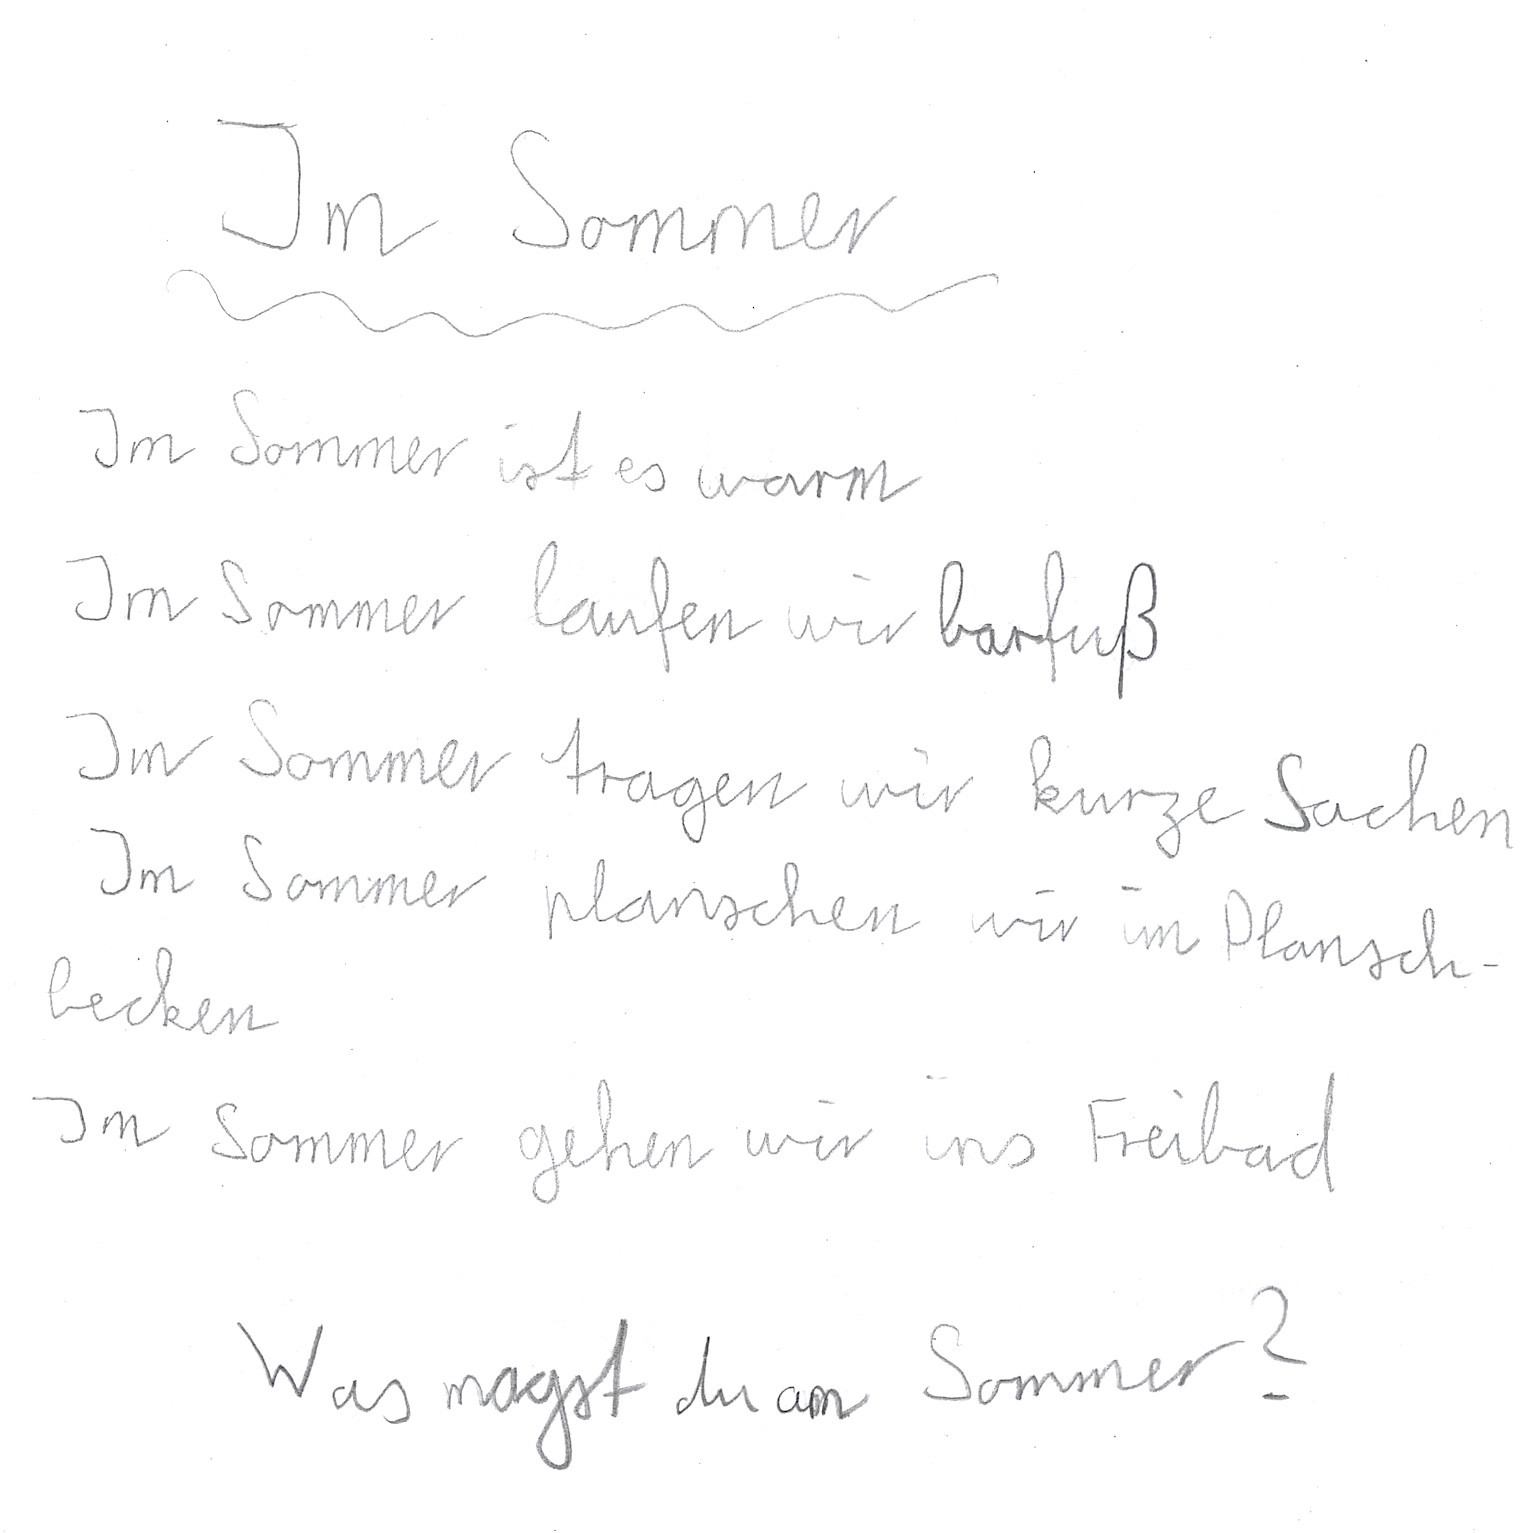 Im Sommer
Im Sommer ist es warm
Im Sommer laufen wir barfuß
Im Sommer tragen wir kurze Sachen
Im Sommer planschen wir im Plansch-
becken
Im Sommer gehen wir ins Freibad
Was magst du am Sommer?